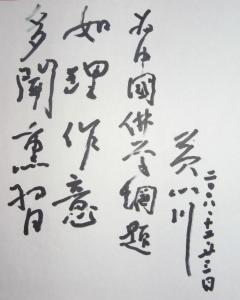 多聞熏習
如理作意
为中國佛学網題
黄心川
二〇〇八·十二·廿三日